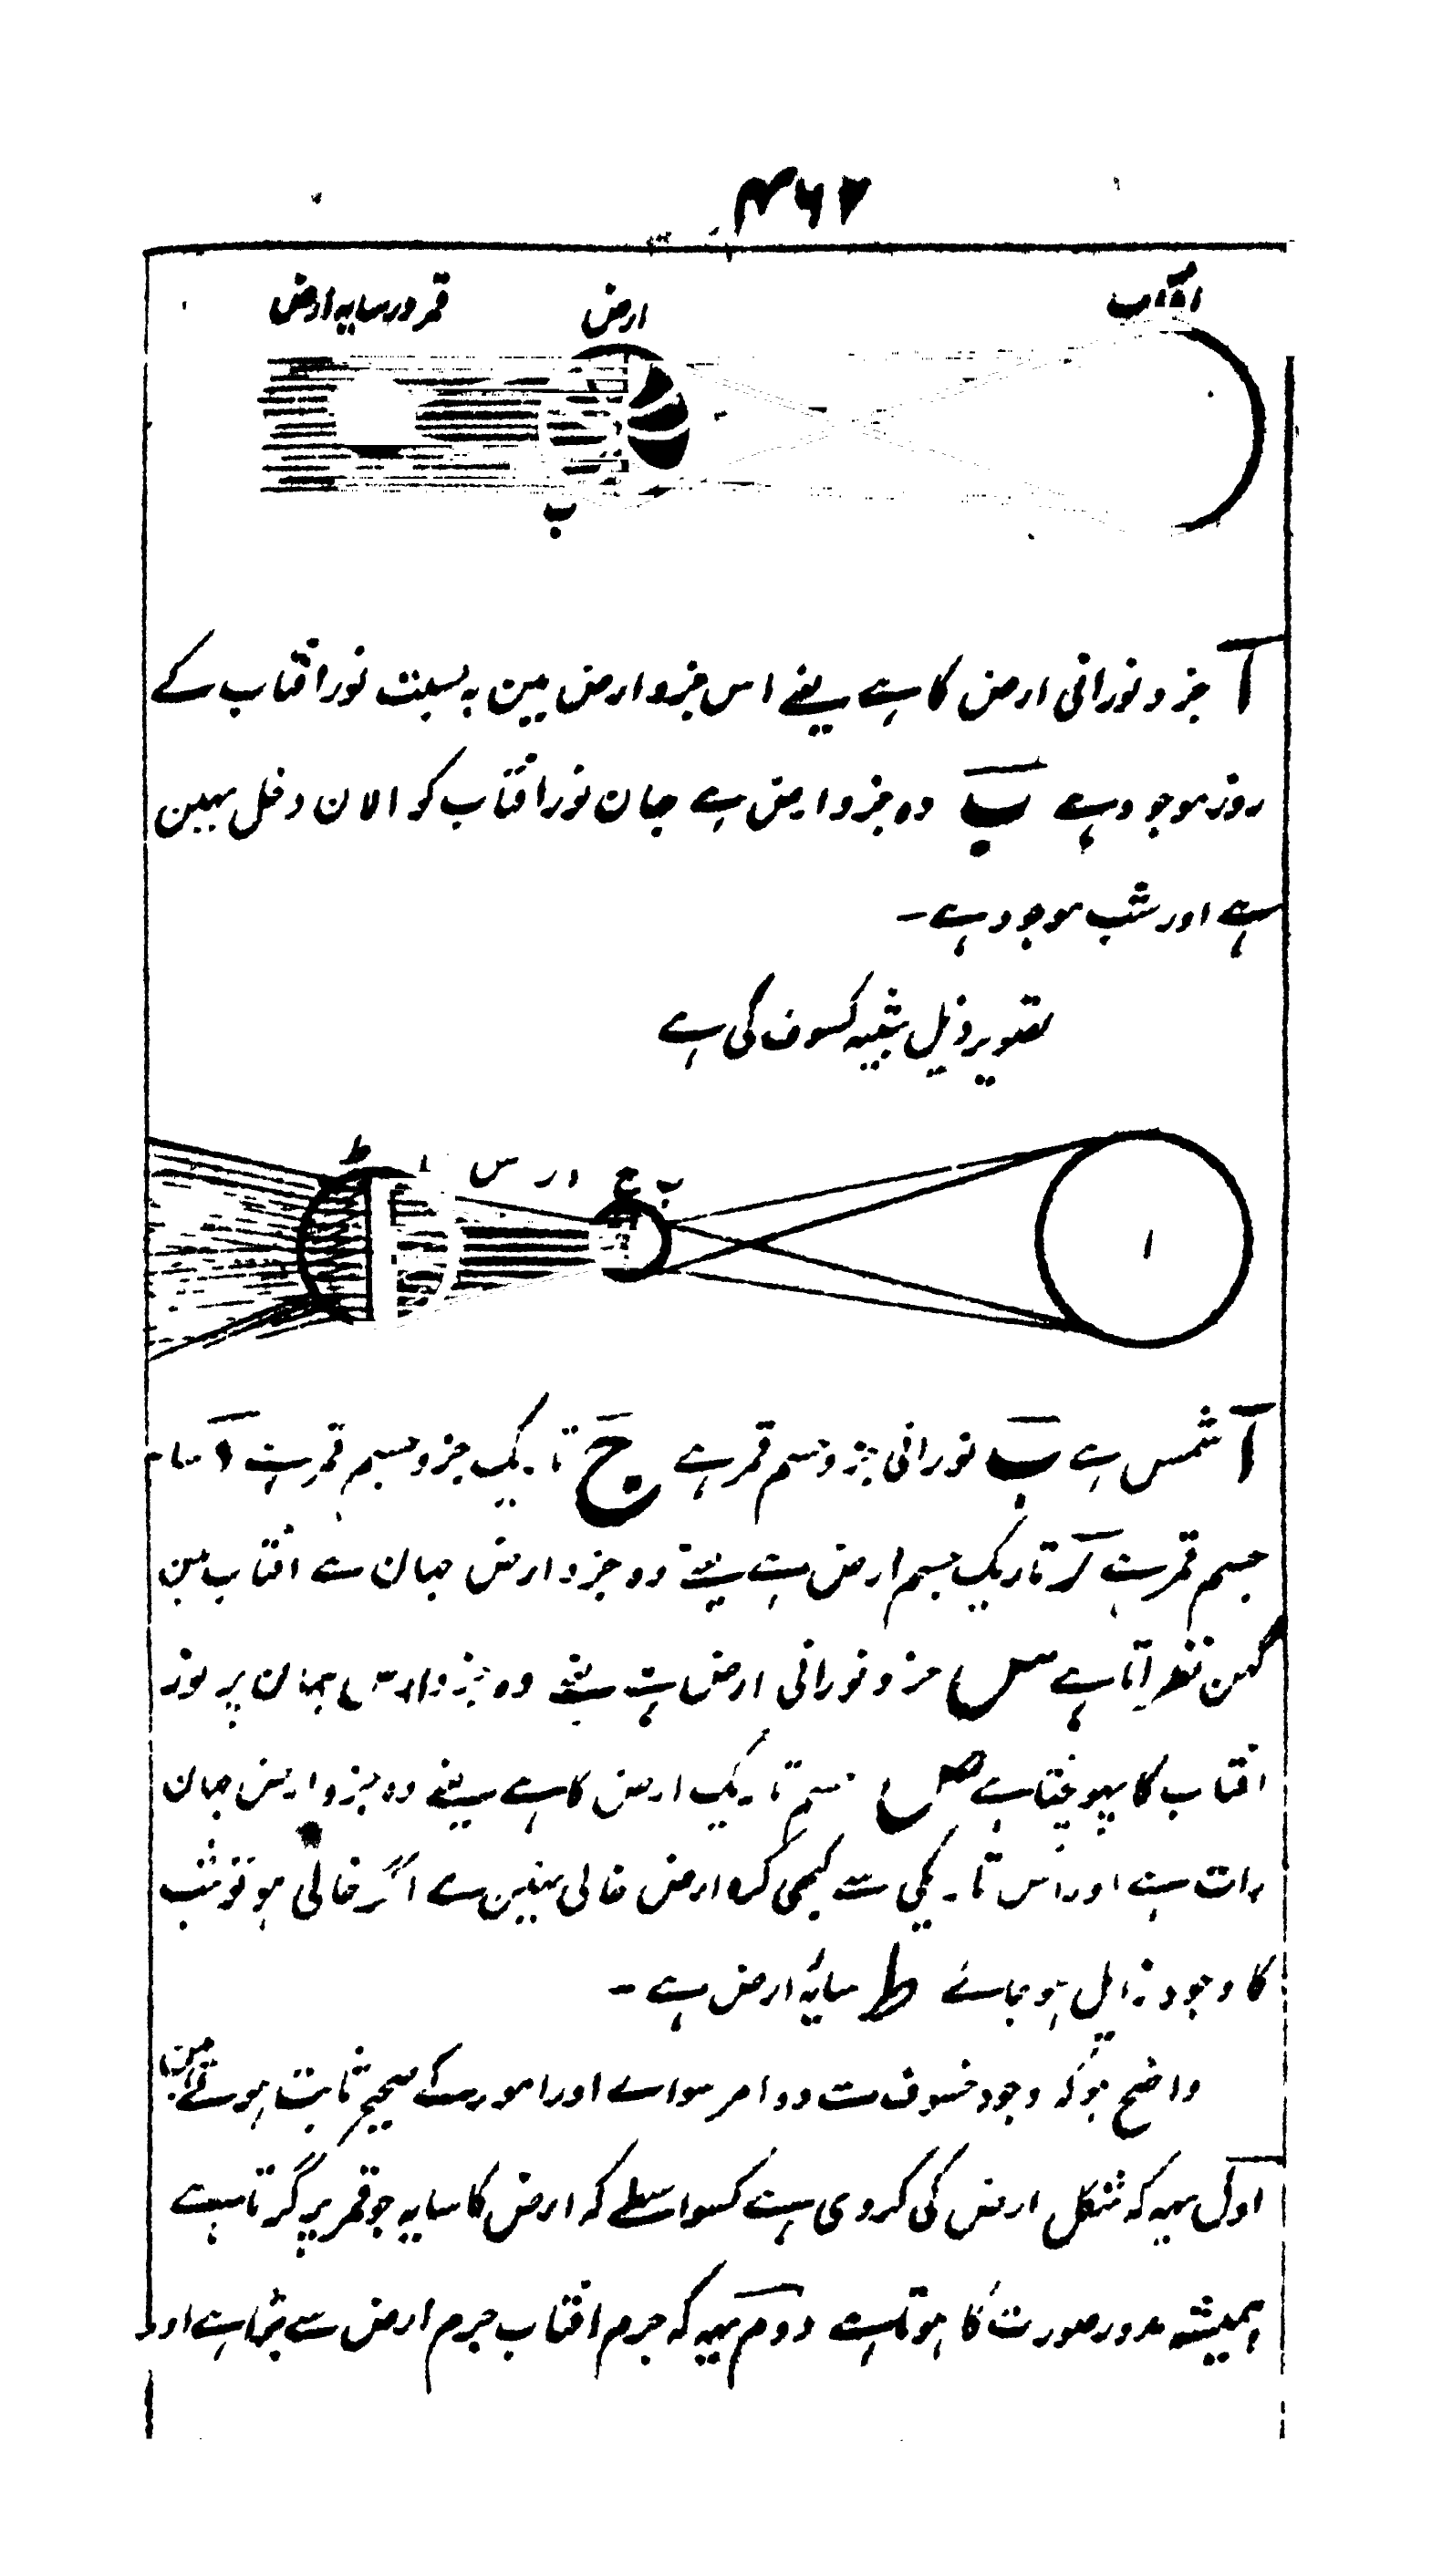 ۴۶۷
آفتاب
ارض
قمر در سایہ ارض
ب
آ جزو نورانی ارض کا ہے یعنے اس جزو ارض مین بہ نسبت نور افتاب کے
روز موجود ہے ب وہ جزو ارض ہے جہان نور افتاب کو الان دخل نہین
ہے اور شب موجود ہے۔
تصویر ذیل شبیہ کسوف کی ہے
ا
ب ج ر س ط
آ شمس ہے ب نورانی جزو جسم قمر ہے ج تاریک جزو جسم قمر ہے
جسم قمر ہے ر تاریک جسم ارض ہے یعنے وہ جزو ارض جہان سے افتاب مین
گہن نظر آتا ہے س جزو نورانی ارض ہے یعنے وہ جزو ارض جہان پر نور
افتاب کا پہونچتا ہے ص جسم تاریک ارض کا ہے یعنے وہ جزو ارض جہان
رات ہے اور اس تاریکی سے کبھی کرہ ارض خالی نہین ہے اگر خالی ہو تو شب
کا وجود زایل ہو جائے ط سایۂ ارض ہے۔
واضح ہو کہ وجود خسوف سے دو امر سواے اور امور کے صحیح ثابت ہوتے ہین
اول یہہ کہ شکل ارض کی کروی ہے کسواسطے کہ ارض کا سایہ جو قمر پر گرتا ہے
ہمیشہ مدور صورت کا ہوتا ہے دوم یہہ کہ جرم افتاب جرم ارض سے بڑا ہے اور